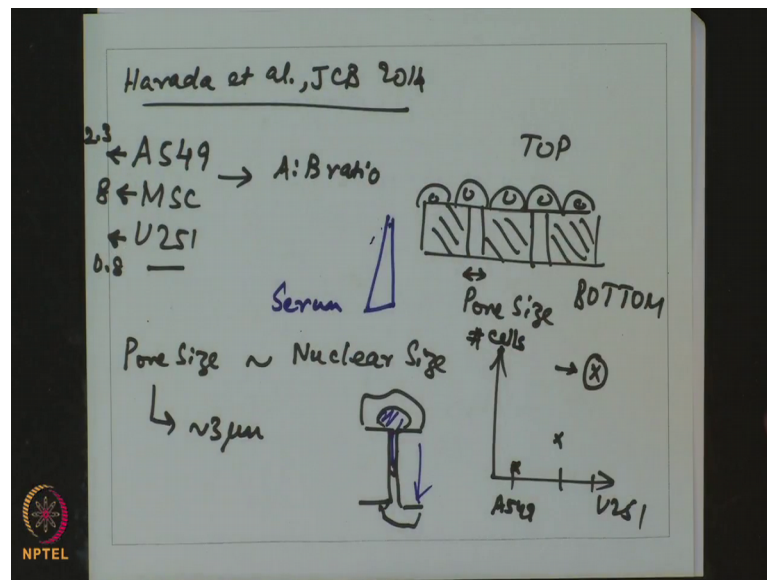 Harada et al., JCB 2014
2.3 ← A549 → A:B ratio
8 ← MSC
← U251
0.8
TOP
Serum
Pore Size
BOTTOM
Pore Size ~ Nuclear Size
~3 μm
# cells
A549
U251
NPTEL